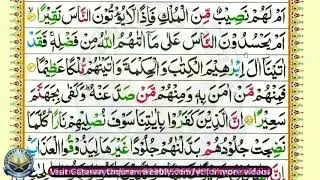 اَمْ لَهُمْ نَصِيْبٌ مِّنَ الْمُلْكِ فَاِذًا لَّا يُؤْتُوْنَ النَّاسَ نَقِيْرًا
اَمْ يَحْسُدُوْنَ النَّاسَ عَلٰى مَاۤ اٰتٰىهُمُ اللّٰهُ مِنْ فَضْلِهٖ فَقَدْ
اٰتَيْنَاۤ اٰلَ اِبْرٰهِيْمَ الْكِتٰبَ وَالْحِكْمَةَ وَاٰتَيْنٰهُمْ مُّلْكًا عَظِيْمًا
فَمِنْهُمْ مَّنْ اٰمَنَ بِهٖ وَمِنْهُمْ مَّنْ صَدَّ عَنْهُ وَكَفٰى بِجَهَنَّمَ
سَعِيْرًا اِنَّ الَّذِيْنَ كَفَرُوْا بِاٰيٰتِنَا سَوْفَ نُصْلِيْهِمْ نَارًا كُلَّمَا
نَضِجَتْ جُلُوْدُهُمْ بَدَّلْنٰهُمْ جُلُوْدًا غَيْرَهَا لِيَذُوْقُوا الْعَذَابَ
Visit Gatewaytoquran.weebly.com/yt for more videos